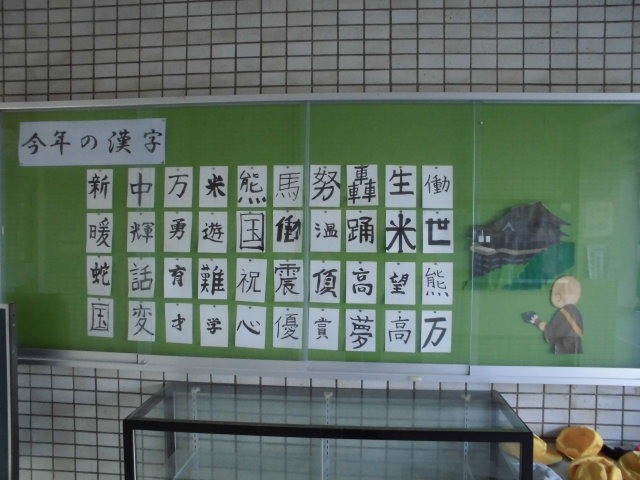 今年の漢字
新 中 万 米 熊 馬 努 轟 生 働
暖 輝 勇 遊 国 働 温 踊 米 世
蛇 話 育 難 祝 震 頂 高 望 熊
国 変 才 学 心 優 賞 夢 高 万